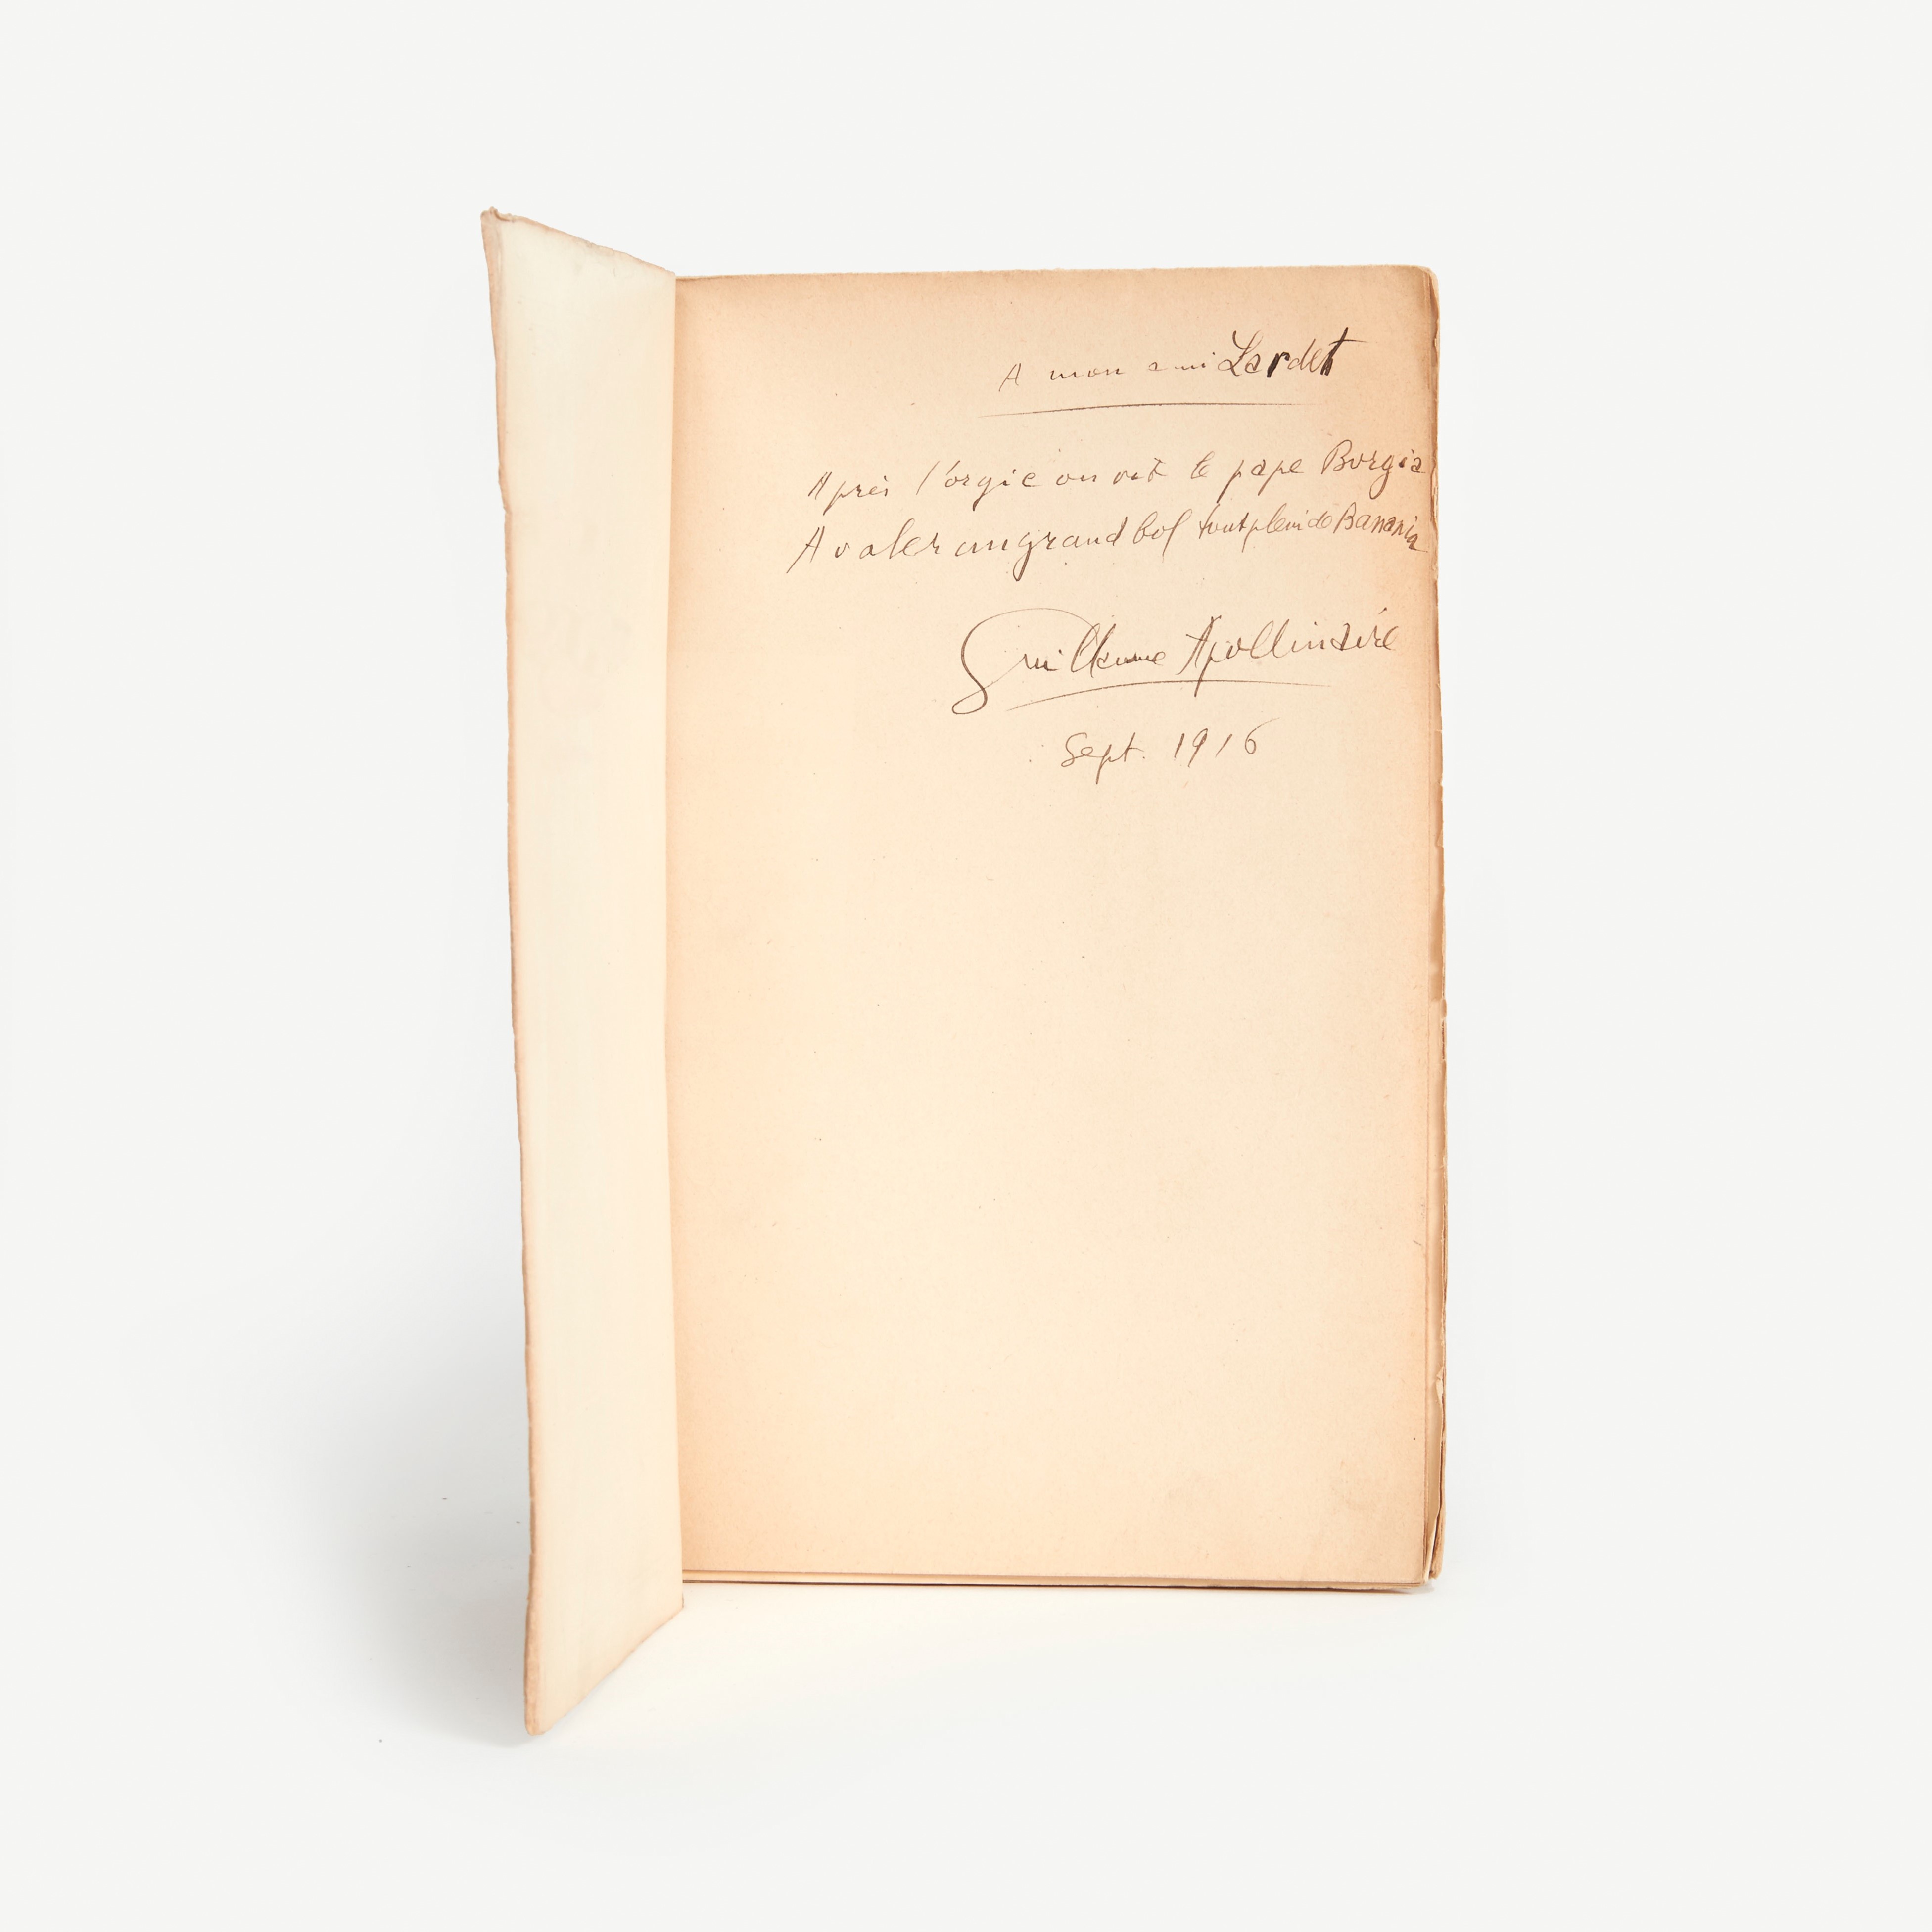 A mon ami Lardet
Après l'orgie on vit le pape Borgia
Avaler un grand bol tout plein de Banania
Guillaume Apollinaire
Sept. 1916